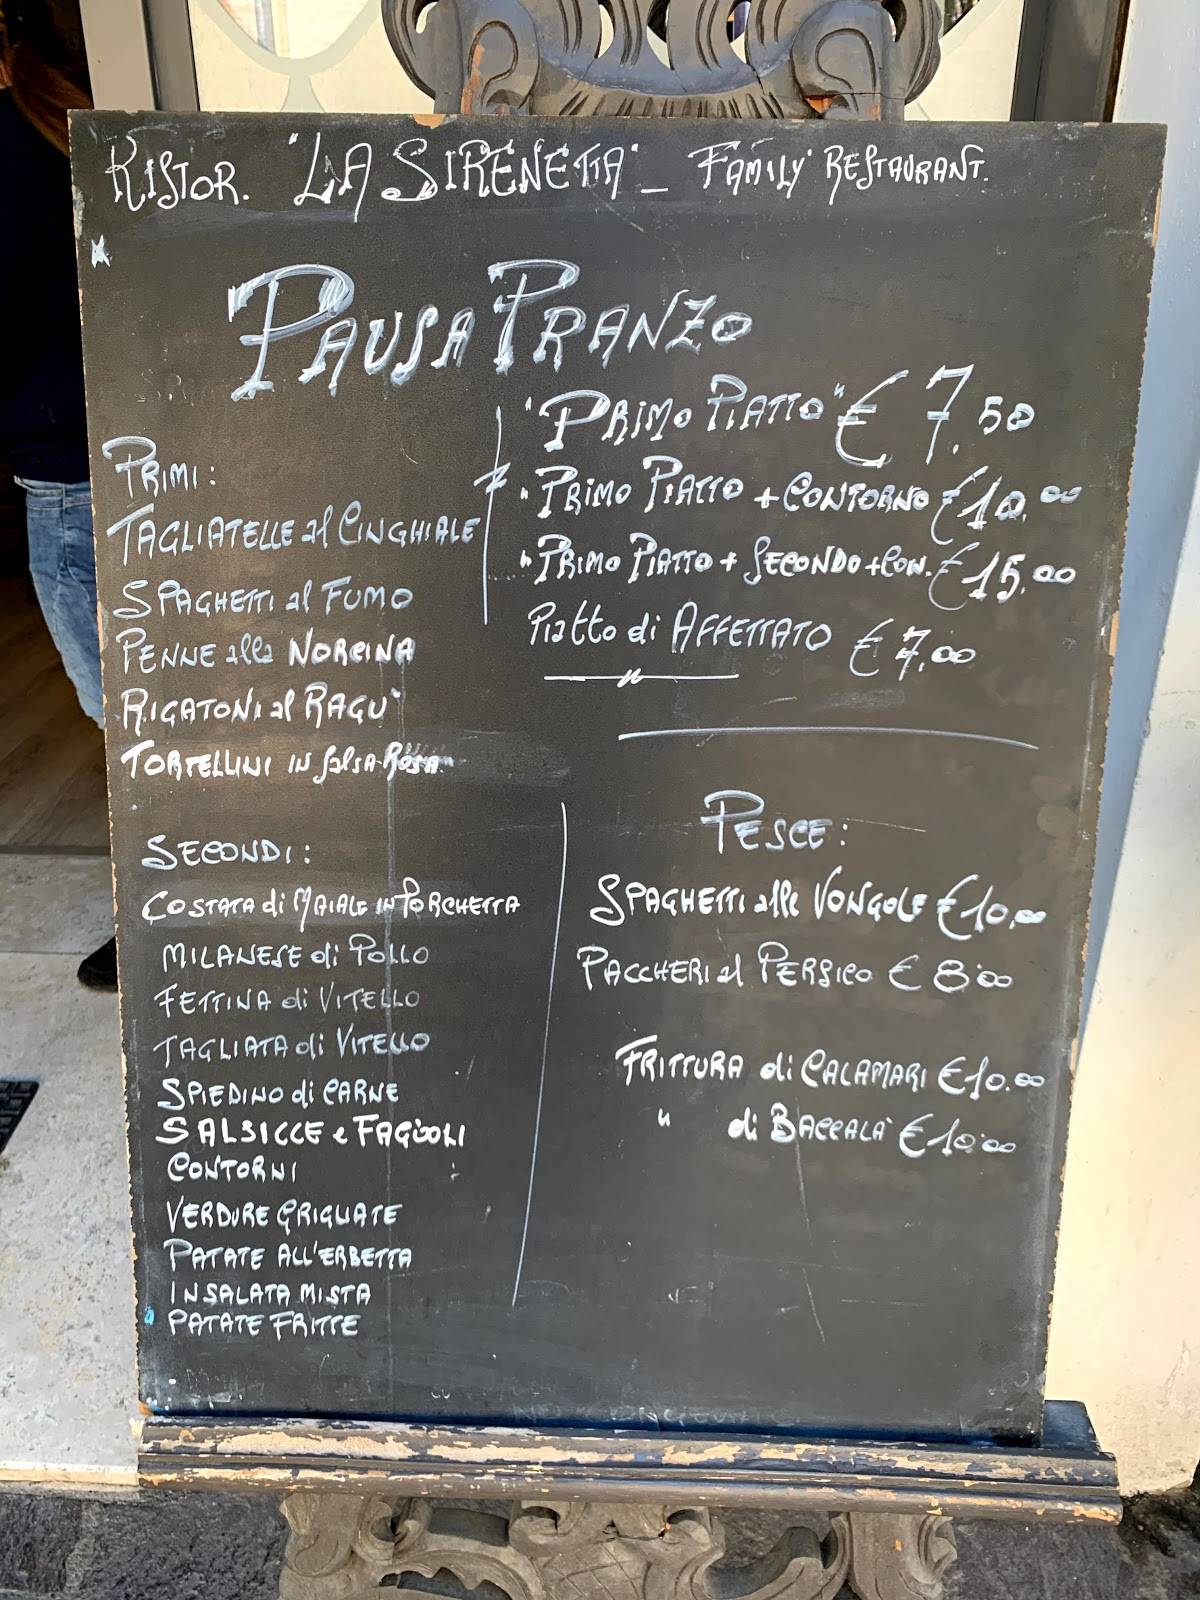 RISTOR. "LA SIRENETTA" - FAMILY RESTAURANT.
PAUSA PRANZO
"PRIMO PIATTO" € 7.50
" PRIMO PIATTO + CONTORNO € 10.00
" PRIMO PIATTO + SECONDO + CON. € 15.00
Piatto di AFFETTATO € 7,00
PRIMI:
TAGLIATELLE al CINGHIALE
SPAGHETTI al FUMO
PENNE alla NORCINA
RIGATONI al RAGU'
TORTELLINI IN SALSA ROSA
SECONDI:
COSTATA di MAIALE IN PORCHETTA
MILANESE di POLLO
FETTINA di VITELLO
TAGLIATA di VITELLO
SPIEDINO di CARNE
SALSICCE e FAGIOLI
CONTORNI
VERDURE GRIGLIATE
PATATE ALL'ERBETTA
INSALATA MISTA
PATATE FRITTE
PESCE:
SPAGHETTI alle VONGOLE € 10.00
PACCHERI al PERSICO € 8.00
FRITTURA di CALAMARI € 10.00
" di BACCALA' € 10.00